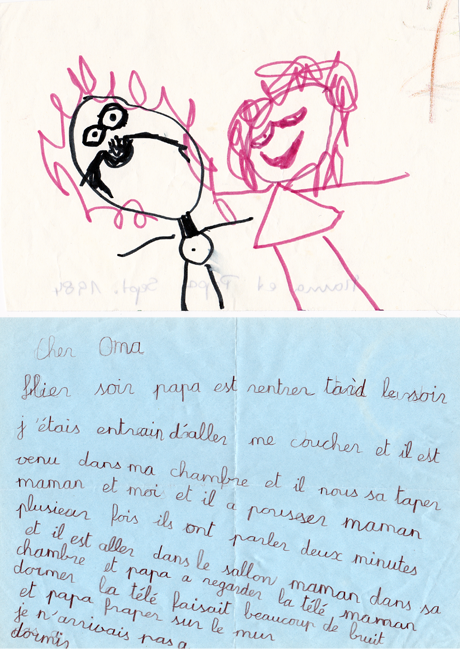 Maman et Papa Sept. 1984
Cher Oma
Hier soir papa est rentrer tard le soir
j'étais entrain d'aller me coucher et il est
venu dans ma chambre et il nous sa taper
maman et moi et il a pousser maman
plusieur fois ils ont parler deux minutes
et il est aller dans le sallon maman dans sa
chambre et papa a regarder la télé maman
dormer la télé faisait beaucoup de bruit
et papa fraper sur le mur
je n'arrivais pas a
dormis